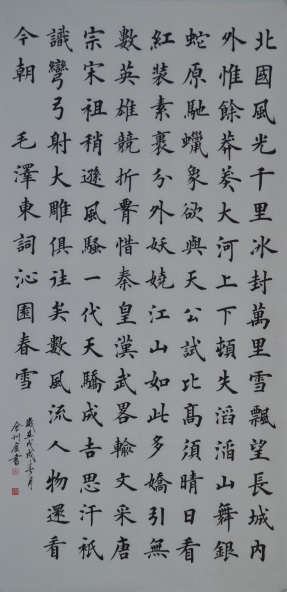 北國風光千里冰封萬里雪飄望長城內
外惟餘莽莽大河上下頓失滔滔山舞銀
蛇原馳蠟象欲與天公試比髙須晴日看
紅裝素裹分外妖嬈江山如此多嬌引無
數英雄競折腰惜秦皇漢武畧輸文采唐
宗宋祖稍遜風騷一代天驕成吉思汗祇
識彎弓射大雕俱往矣數風流人物還看
今朝 毛澤東詞沁園春雪